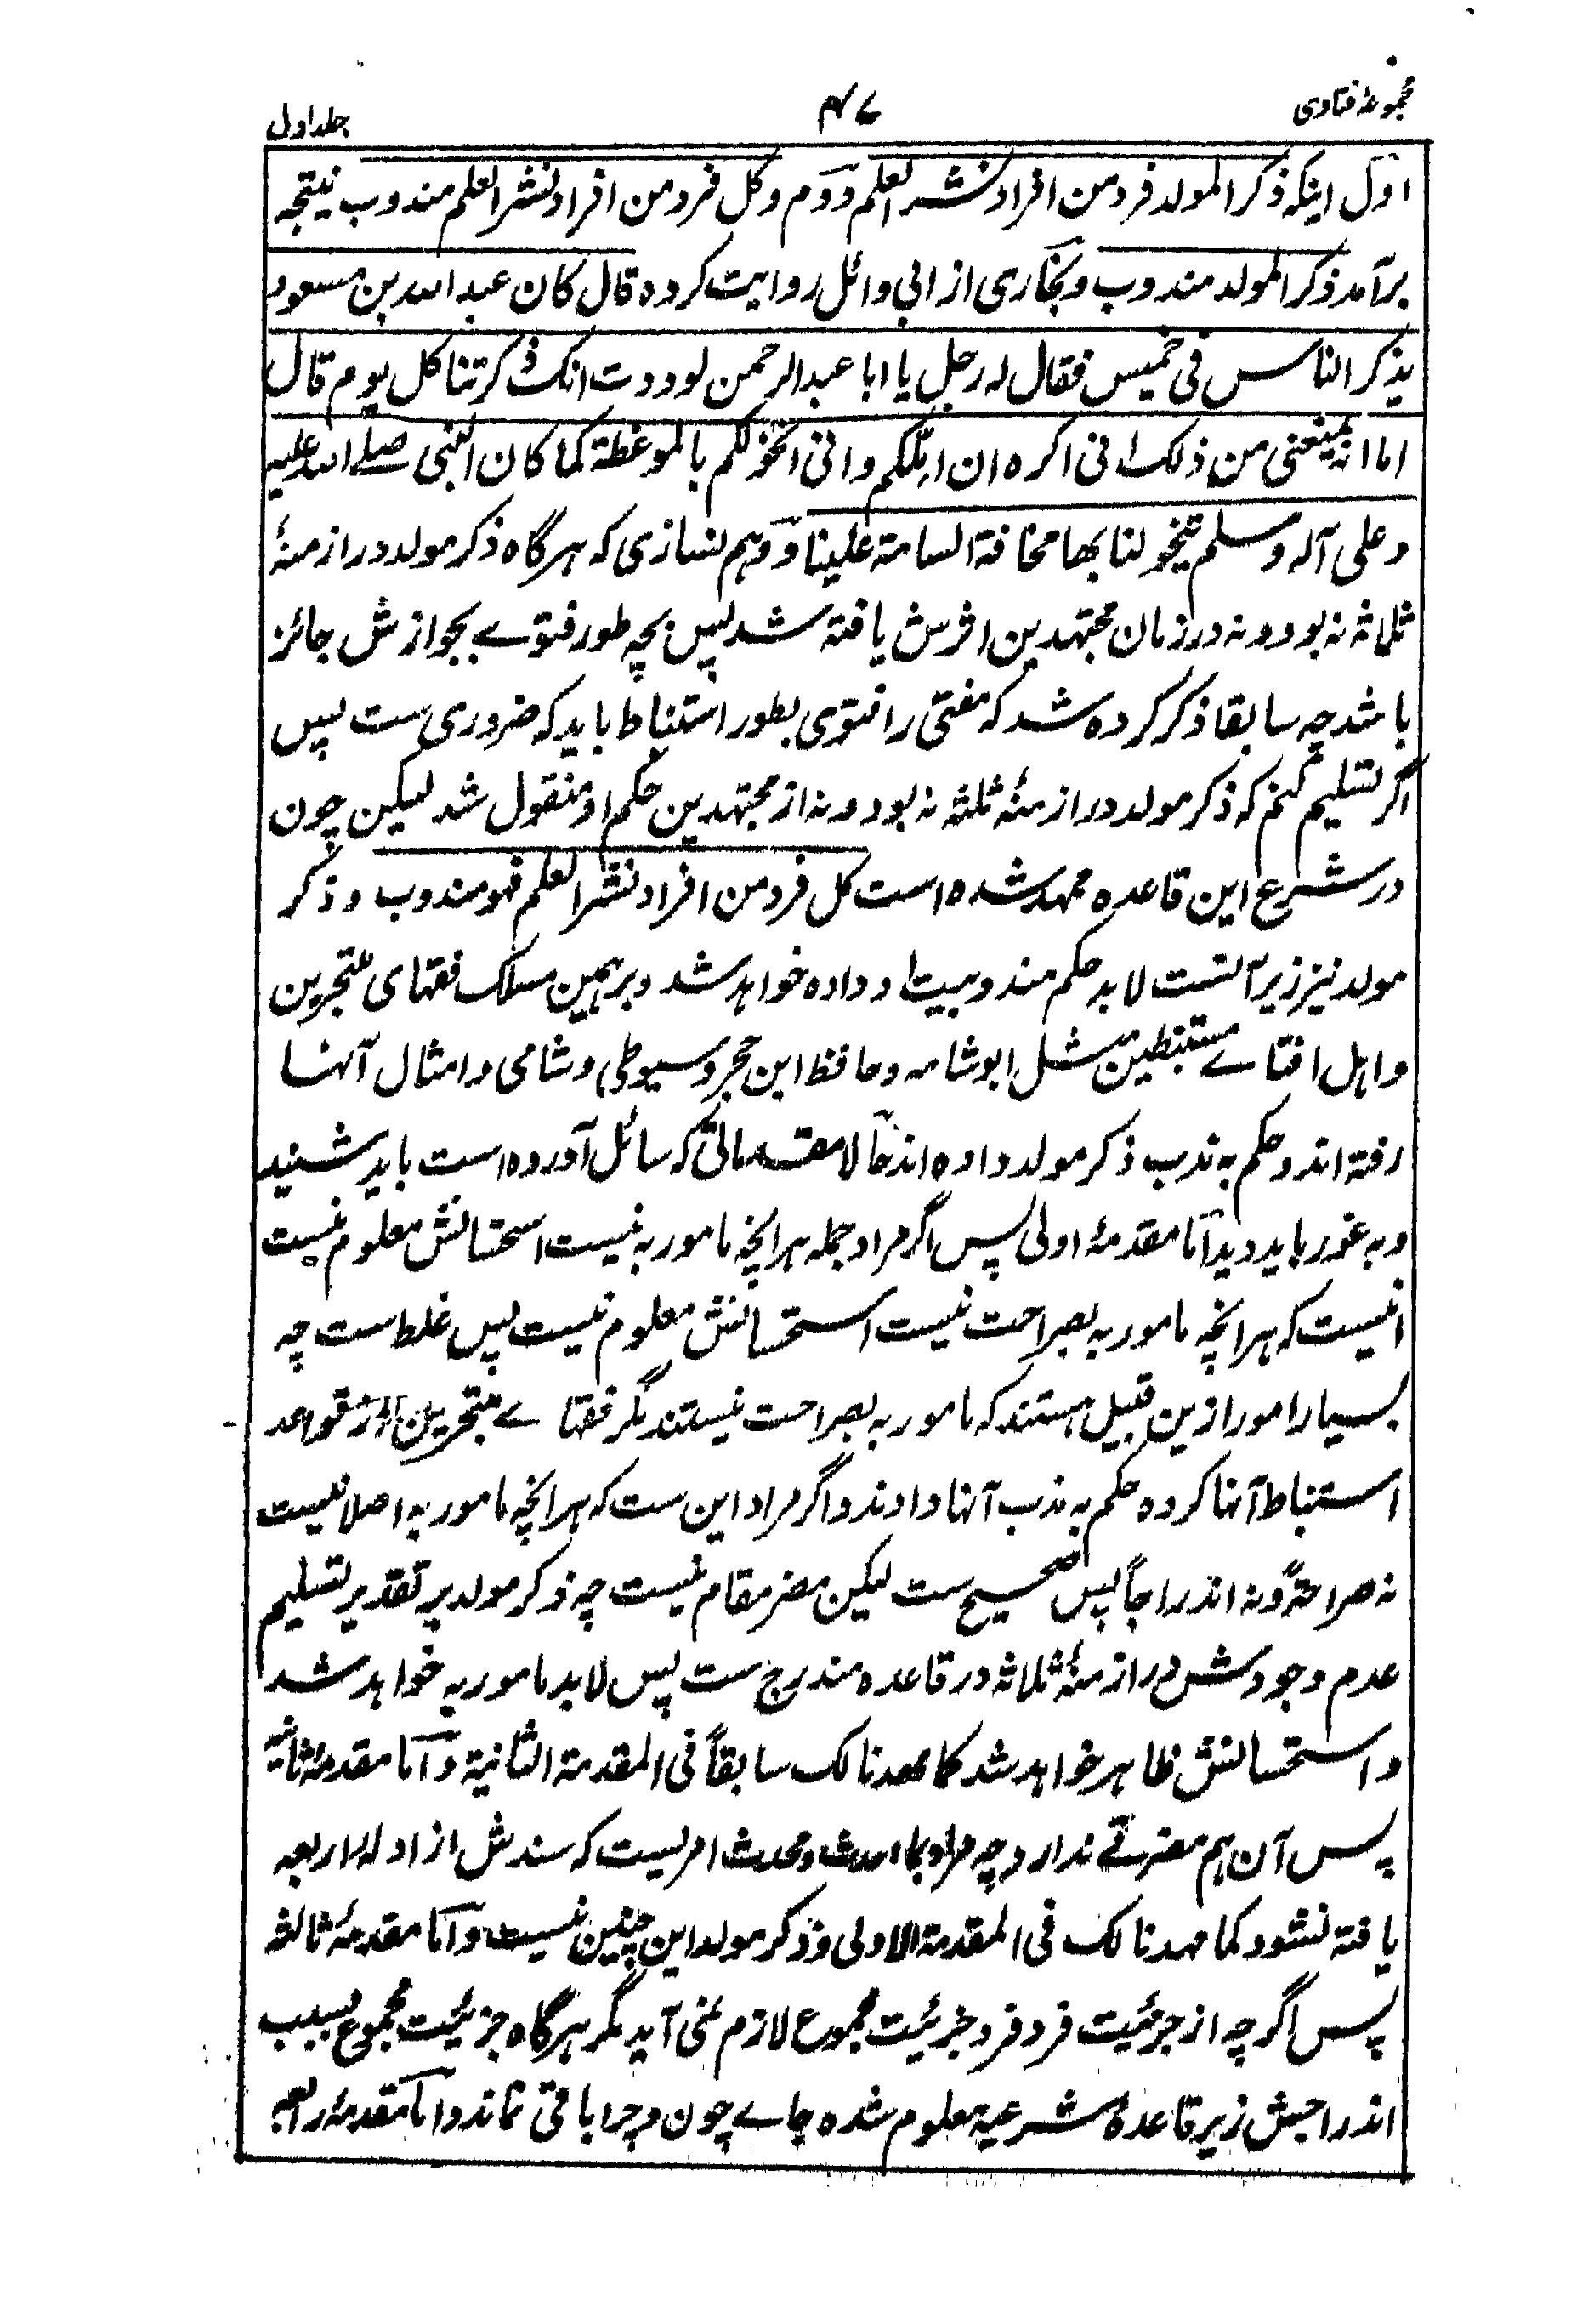 مجموعۂ فتاوی
۴۷
جلد اول
اول اینکه ذکر المولد فرد من افراد نشر العلم ودوم وکل فرد من افراد نشر العلم مندوب نتیجه
برآمد ذکر المولد مندوب وبخاری از ابی وائل روایت کرده قال کان عبد الله بن مسعود
یذکر الناس فی خمیس فقال له رجل یا ابا عبد الرحمن لوددت انک ذکرتنا کل یوم قال
اما انه یمنعنی من ذلک انی اکره ان املکم وانی اتخولکم بالموعظة کما کان النبی صلے الله علیه
وعلی آله وسلم یتخولنا بها مخافة السامة علینا ووہم نسازی که هرگاه ذکر مولد در ازمنۂ
ثلاثه نه بود ونه در زمان مجتهدین اثرش یافته شد پس بچه طور فتوے بجوازش جائز
باشد چه سابقا ذکر کرده شد که مفتی را فتوی بطور استنباط باید که ضروری ست پس
اگر تسلیم کنم که ذکر مولد در ازمنۂ ثلثه نه بود ونه از مجتهدین حکم او منقول شد لیکن چون
در شرع این قاعده ممهد شده است کل فرد من افراد نشر العلم فهو مندوب وذکر
مولد نیز زیر آنست لابد حکم مندوبیت او داده خواهد شد وبر همین مسلک فقهای متبحرین
واهل افتاے مستنبطین مثل ابو شامه وحافظ ابن حجر وسیوطی وشامی وامثال آنها
رفته اند وحکم به ندب ذکر مولد داده اند حالا مقدماتی که سائل آورده است باید شنید
وبه غور باید دید اما مقدمۂ اولی پس اگر مراد جمله هر انچه مامور به نیست استحسانش معلوم نیست
انیست که هر انچه مامور به بصراحت نیست استحسانش معلوم نیست پس غلط ست چه
بسیار امور ازین قبیل هستند که مامور به بصراحت نیستند مگر فقهاے متبحرین از قواعد
استنباط آنها کرده حکم به ندب آنها دادند واگر مراد این ست که هر انچه مامور به اصلا نیست
نه صراحةً ونه اندراجاً پس صحیح ست لیکن مضر مقام نیست چه ذکر مولد بر تقدیر تسلیم
عدم وجودش در ازمنۂ ثلاثه در قاعده مندرج ست پس لابد مامور به خواهد شد
واستحسانش ظاهر خواهد شد کما مهدنا لک سابقاً فی المقدمة الثانیة واما مقدمۂ ثانیه
پس آن هم مضرتے ندارد چه مراد بما احدث ومحدث امریست که سندش از ادلۂ اربعه
یافته نشود کما مهدنا لک فی المقدمة الاولی وذکر مولد این چنین نیست واما مقدمۂ ثالثه
پس اگرچه از جزئیت فرد فرد جزئیت مجموع لازم نمی آید مگر هرگاه جزئیت مجموع بسبب
اندراجش زیر قاعدۂ شرعیه معلوم شده جاے چون وچرا باقی نماند واما مقدمۂ رابعه